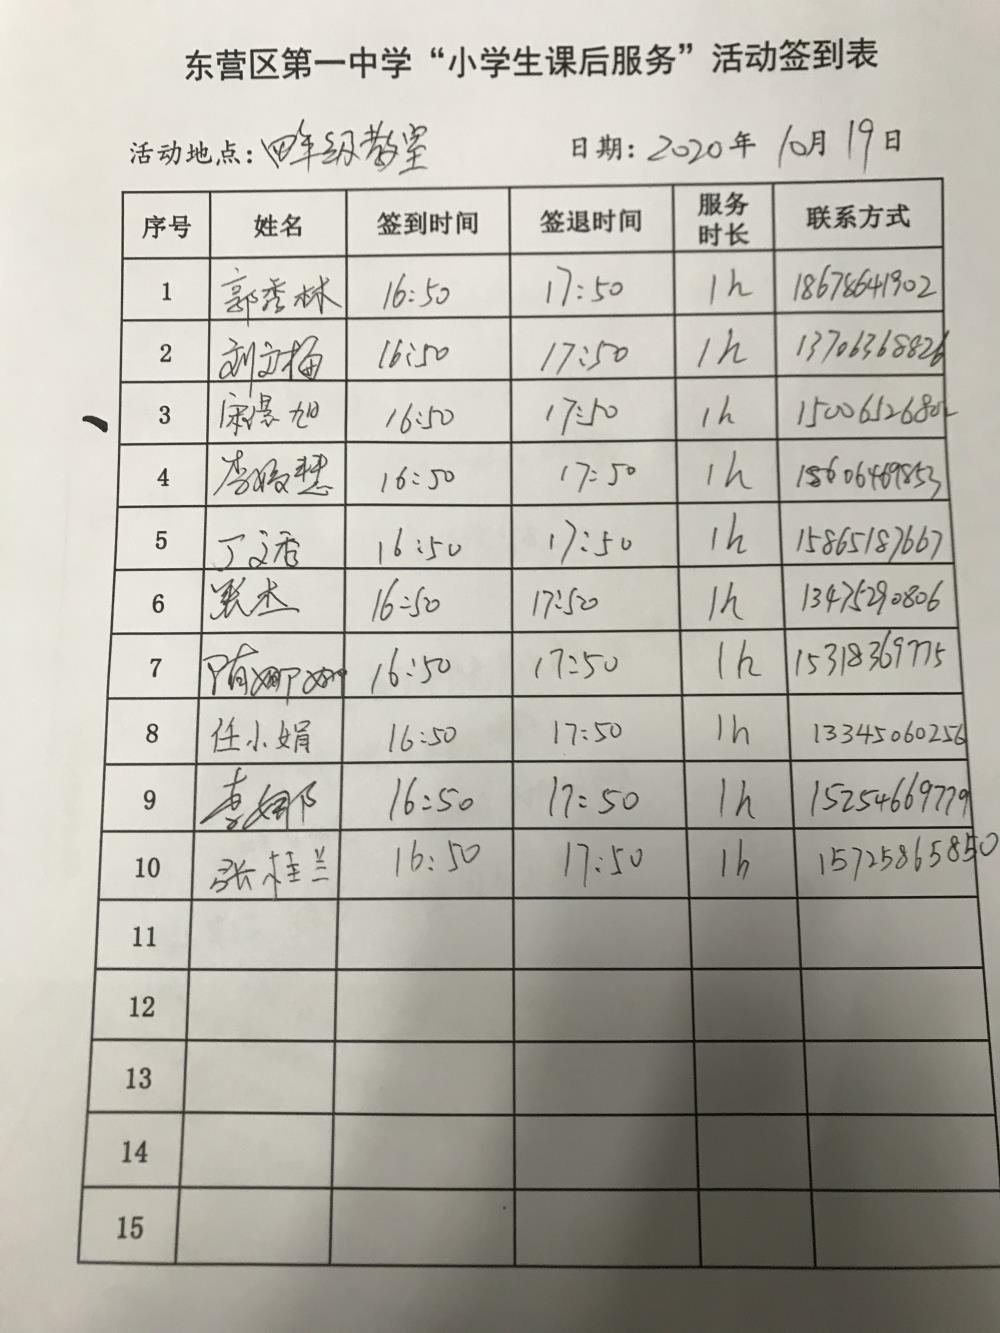 东营区第一中学“小学生课后服务”活动签到表
活动地点：四年级教室 日期：2020年 10月 19日
序号 姓名 签到时间 签退时间 服务时长 联系方式
1 郭秀林 16:50 17:50 1h 18678641902
2 刘文梅 16:50 17:50 1h 13706368826
3 旭 16:50 17:50 1h 15006526802
4 李 慧 16:50 17:50 1h 18606469853
5 丁文香 16:50 17:50 1h 15865187667
6 杰 16:50 17:50 1h 13475290806
7 隋娜娜 16:50 17:50 1h 15318369775
8 任小娟 16:50 17:50 1h 13345060256
9 李娜 16:50 17:50 1h 15254669779
10 张桂兰 16:50 17:50 1h 15725865850
11
12
13
14
15